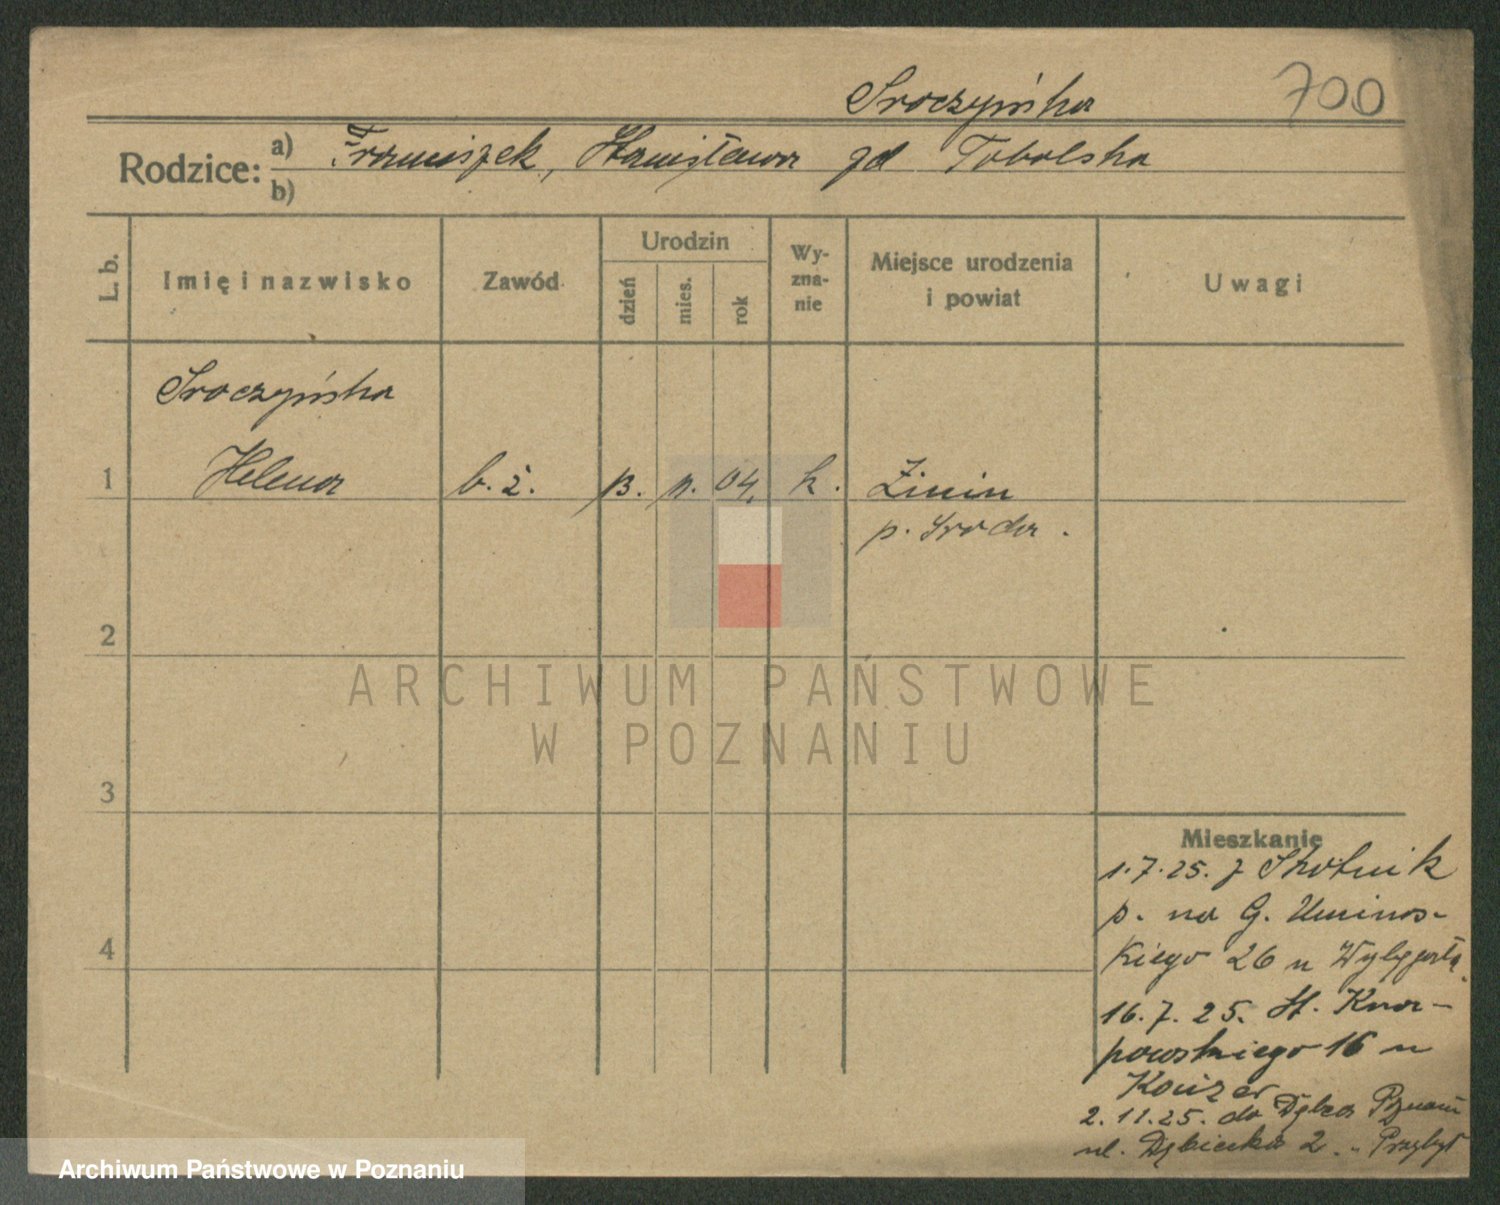 Sroczyńska
700
Rodzice: a) Franciszek, Stanisława zd Tobolska
b)
L. b.
Imię i nazwisko
Zawód
Urodzin
dzień
mies.
rok
Wy-
zna-
nie
Miejsce urodzenia
i powiat
Uwagi
Sroczyńska
1 Helena b. z. 13. 11. 04. k. Zimin
p. Sroda.
2
3
4
ARCHIWUM PAŃSTWOWE
W POZNANIU
Mieszkanie
1.7.25. z Skotnik
p. na G. Umińs-
kiego 26 u
16.7.25. St. Kna-
powskiego 16 u
2.11.25. do Dębca Poznań
ul. Dębiecka 2
Archiwum Państwowe w Poznaniu